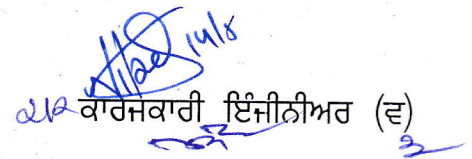 14/8
ਕਾਰਜਕਾਰੀ ਇੰਜੀਨੀਅਰ (ਵ)